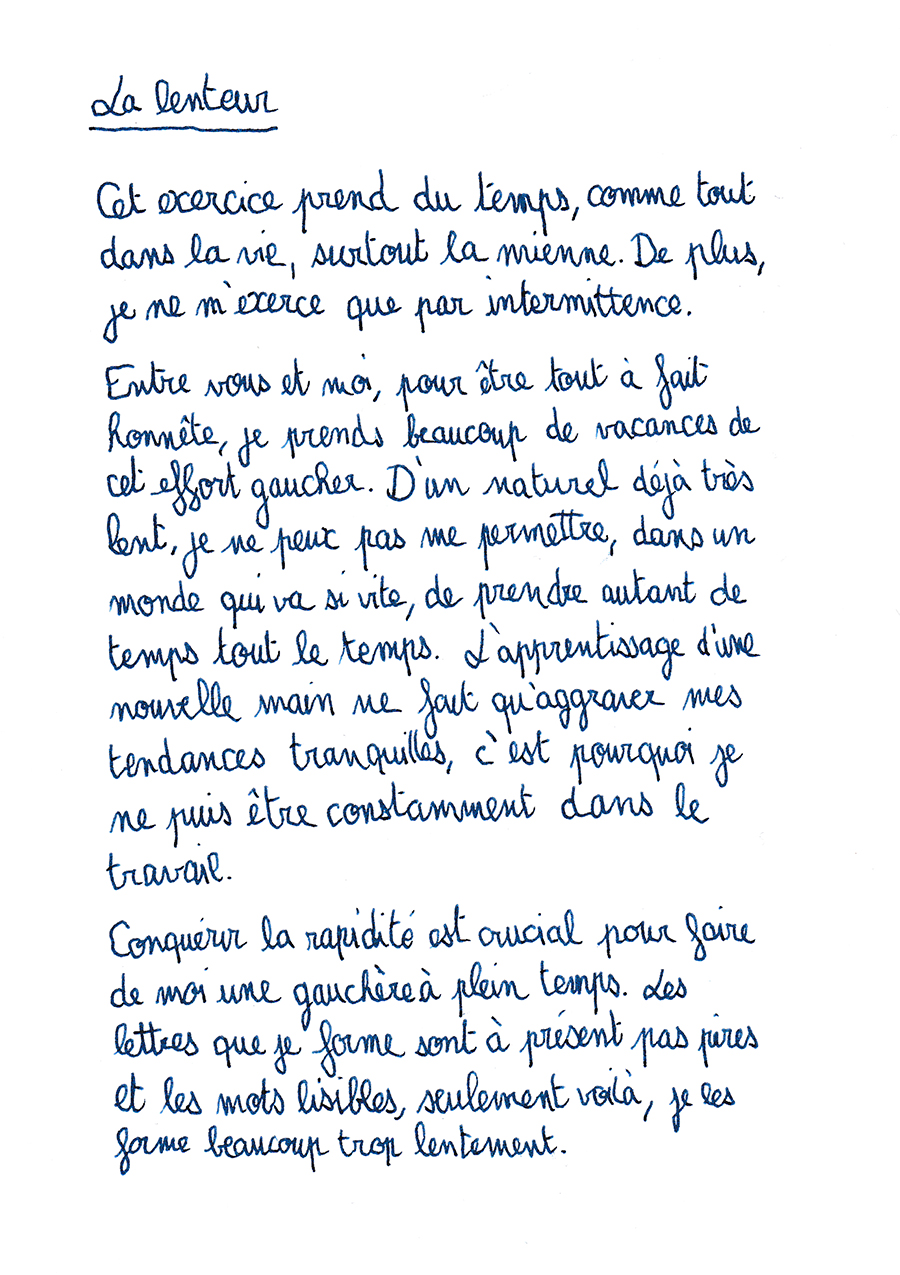 La lenteur
Cet exercice prend du temps, comme tout
dans la vie, surtout la mienne. De plus,
je ne m'exerce que par intermittence.
Entre vous et moi, pour être tout à fait
honnête, je prends beaucoup de vacances de
cet effort gaucher. D'un naturel déjà très
lent, je ne peux pas me permettre, dans un
monde qui va si vite, de prendre autant de
temps tout le temps. L'apprentissage d'une
nouvelle main ne fait qu'aggraver mes
tendances tranquilles, c'est pourquoi je
ne puis être constamment dans le
travail.
Conquérir la rapidité est crucial pour faire
de moi une gauchère à plein temps. Les
lettres que je forme sont à présent pas pires
et les mots lisibles, seulement voilà, je les
forme beaucoup trop lentement.